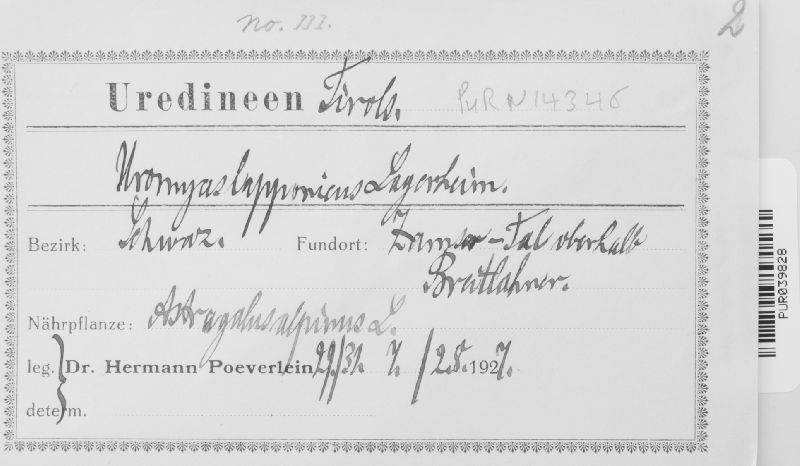 no. III.
2
Uredineen Tirols.
PUR N14346
Uromyces lapponicus Lagerheim.
Bezirk: Schwaz. Fundort: Zamser-Tal oberhalb
Breitlahner.
Nährpflanze: Astragalus alpinus L.
leg. Dr. Hermann Poeverlein, 29./31. 7. / 2.8. 1927.
determ.
PUR039828